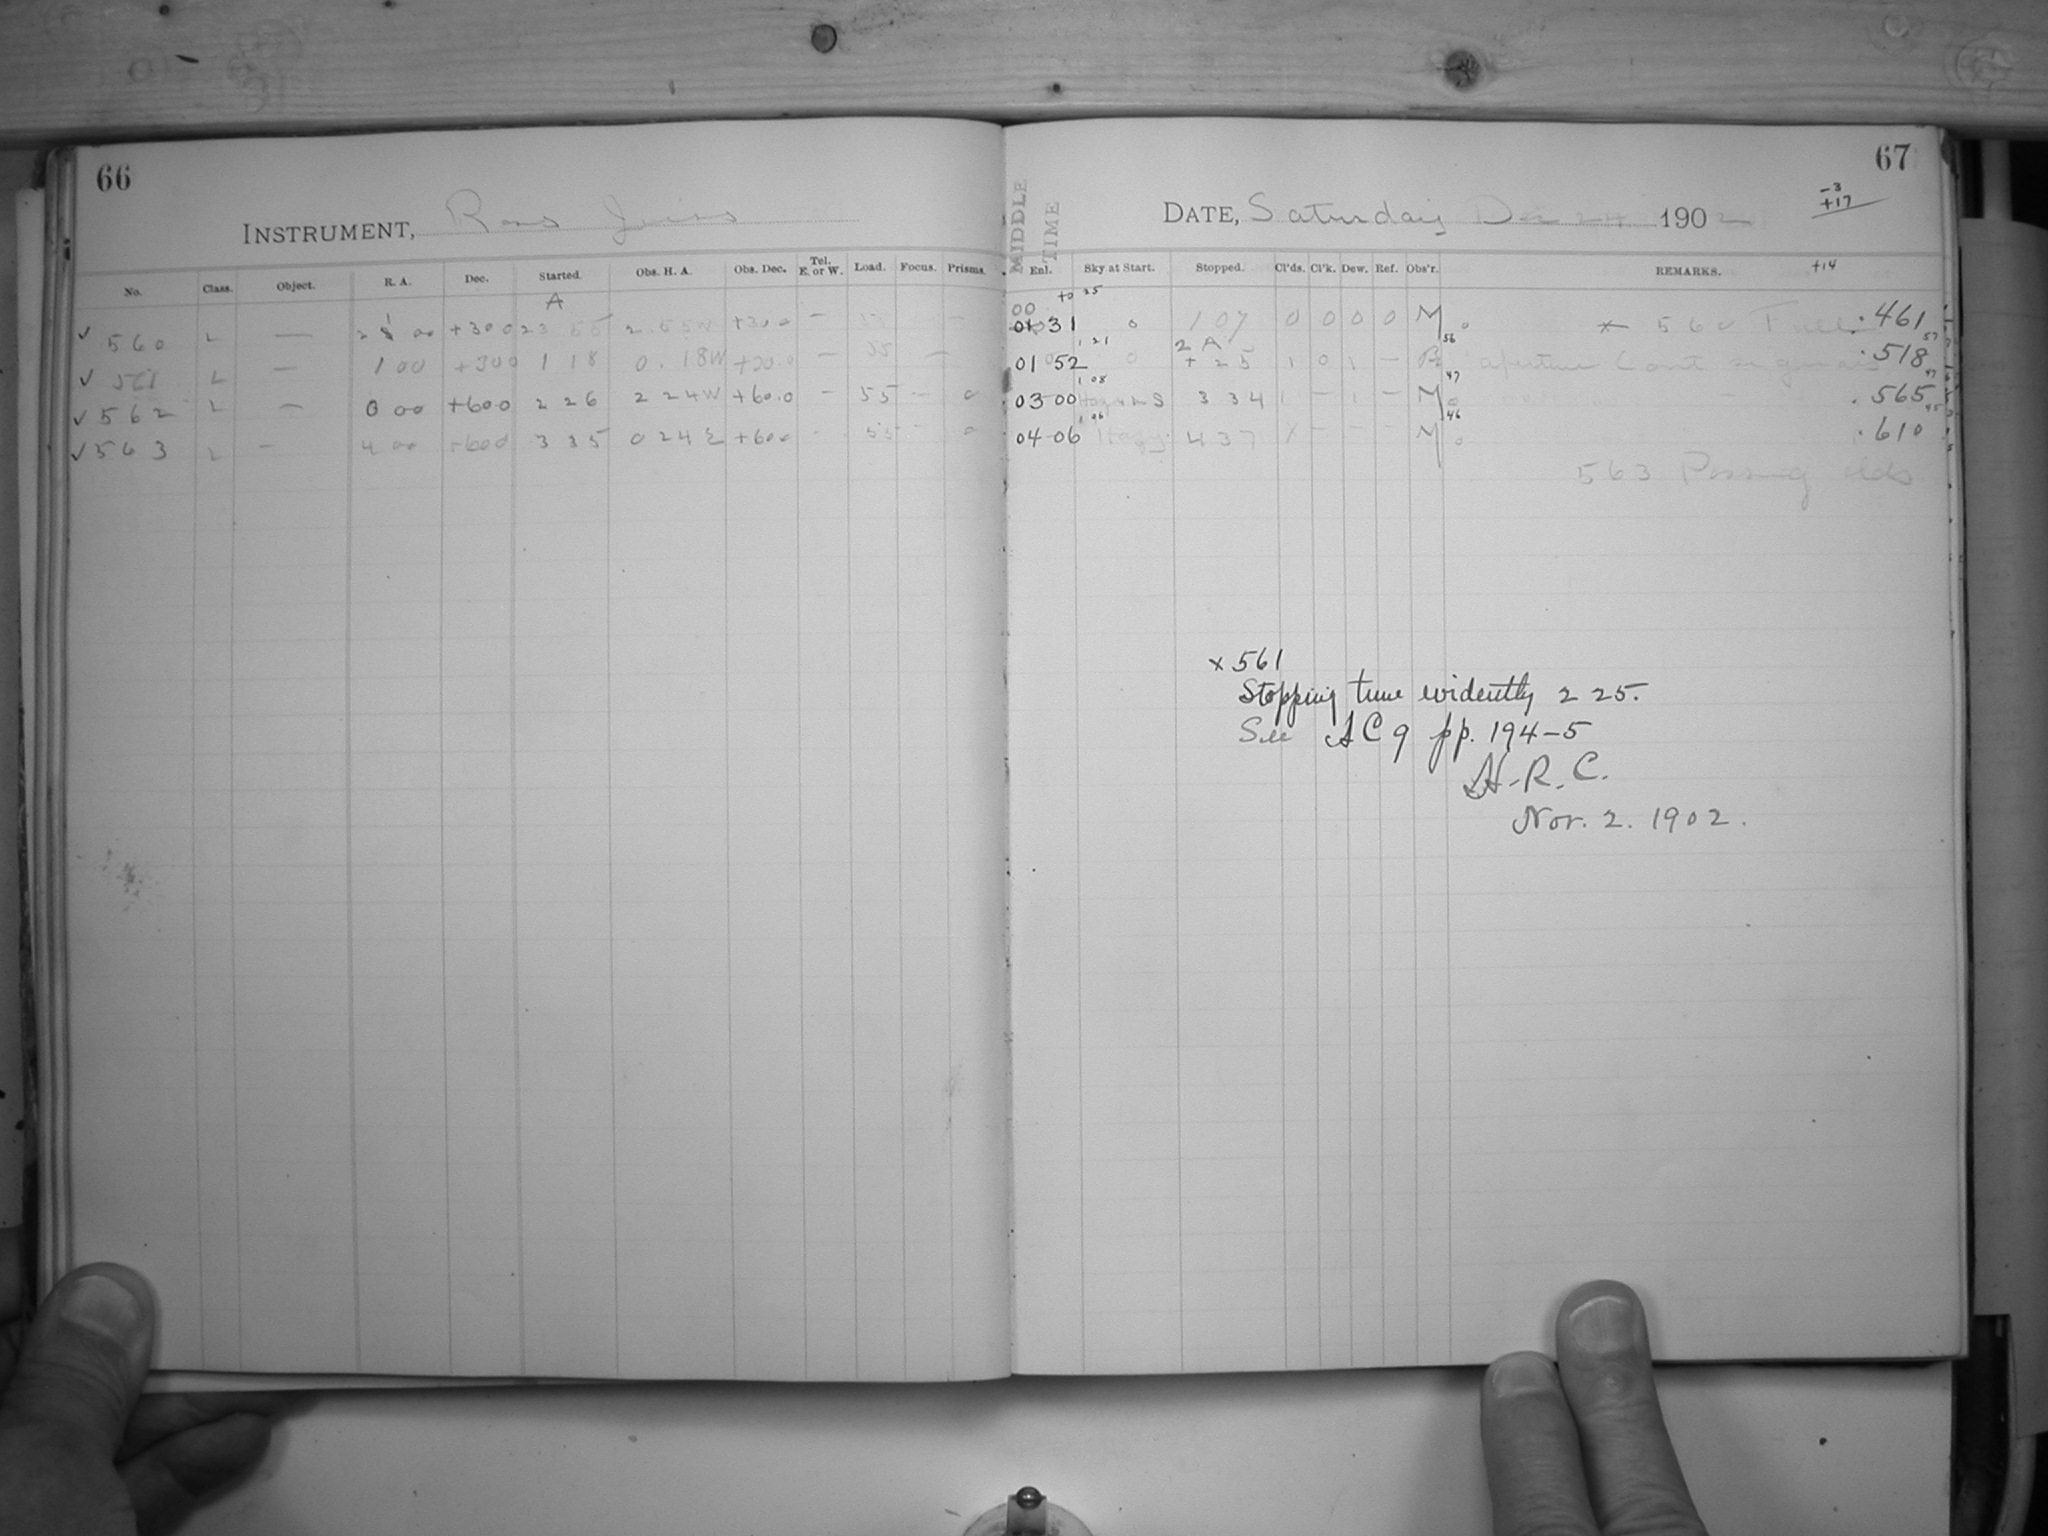 66
INSTRUMENT, Ross
No. Class. Object. R. A. Dec. Started. Obs. H. A. Obs. Dec. Tel. E. or W. Load. Focus. Prisms.
A
✓ 560 L — 00 +300 23 55 2.55W +30.0 —
✓ 561 L — 1 00 +300 1 18 0.18W +30.0 — 55 —
✓ 562 L — 0 00 +600 2 26 2 24W +60.0 — 55 — 0
✓ 563 L — 4 00 +600 3 35 0 24E +600 - 55 - 0
67
-3
+17
DATE, Saturday 1902
MIDDLE TIME
Enl. Sky at Start. Stopped. Cl'ds. Cl'k. Dew. Ref. Obs'r. REMARKS. +14
00 31 0 1 07 0 0 0 0 M 560 .461
1 21 2 A 56 57
01 52 0 + 25 1 0 1 — aperture .518
1 08 47 47
03-00 3 34 1 — 1 — M .565
1 06 46 45
04-06 Hazy 4 37 — — — M .610
563 Passing clds
× 561
Stopping time evidently 2 25.
See AC 9 pp. 194-5
H. R. C.
Nov. 2. 1902.